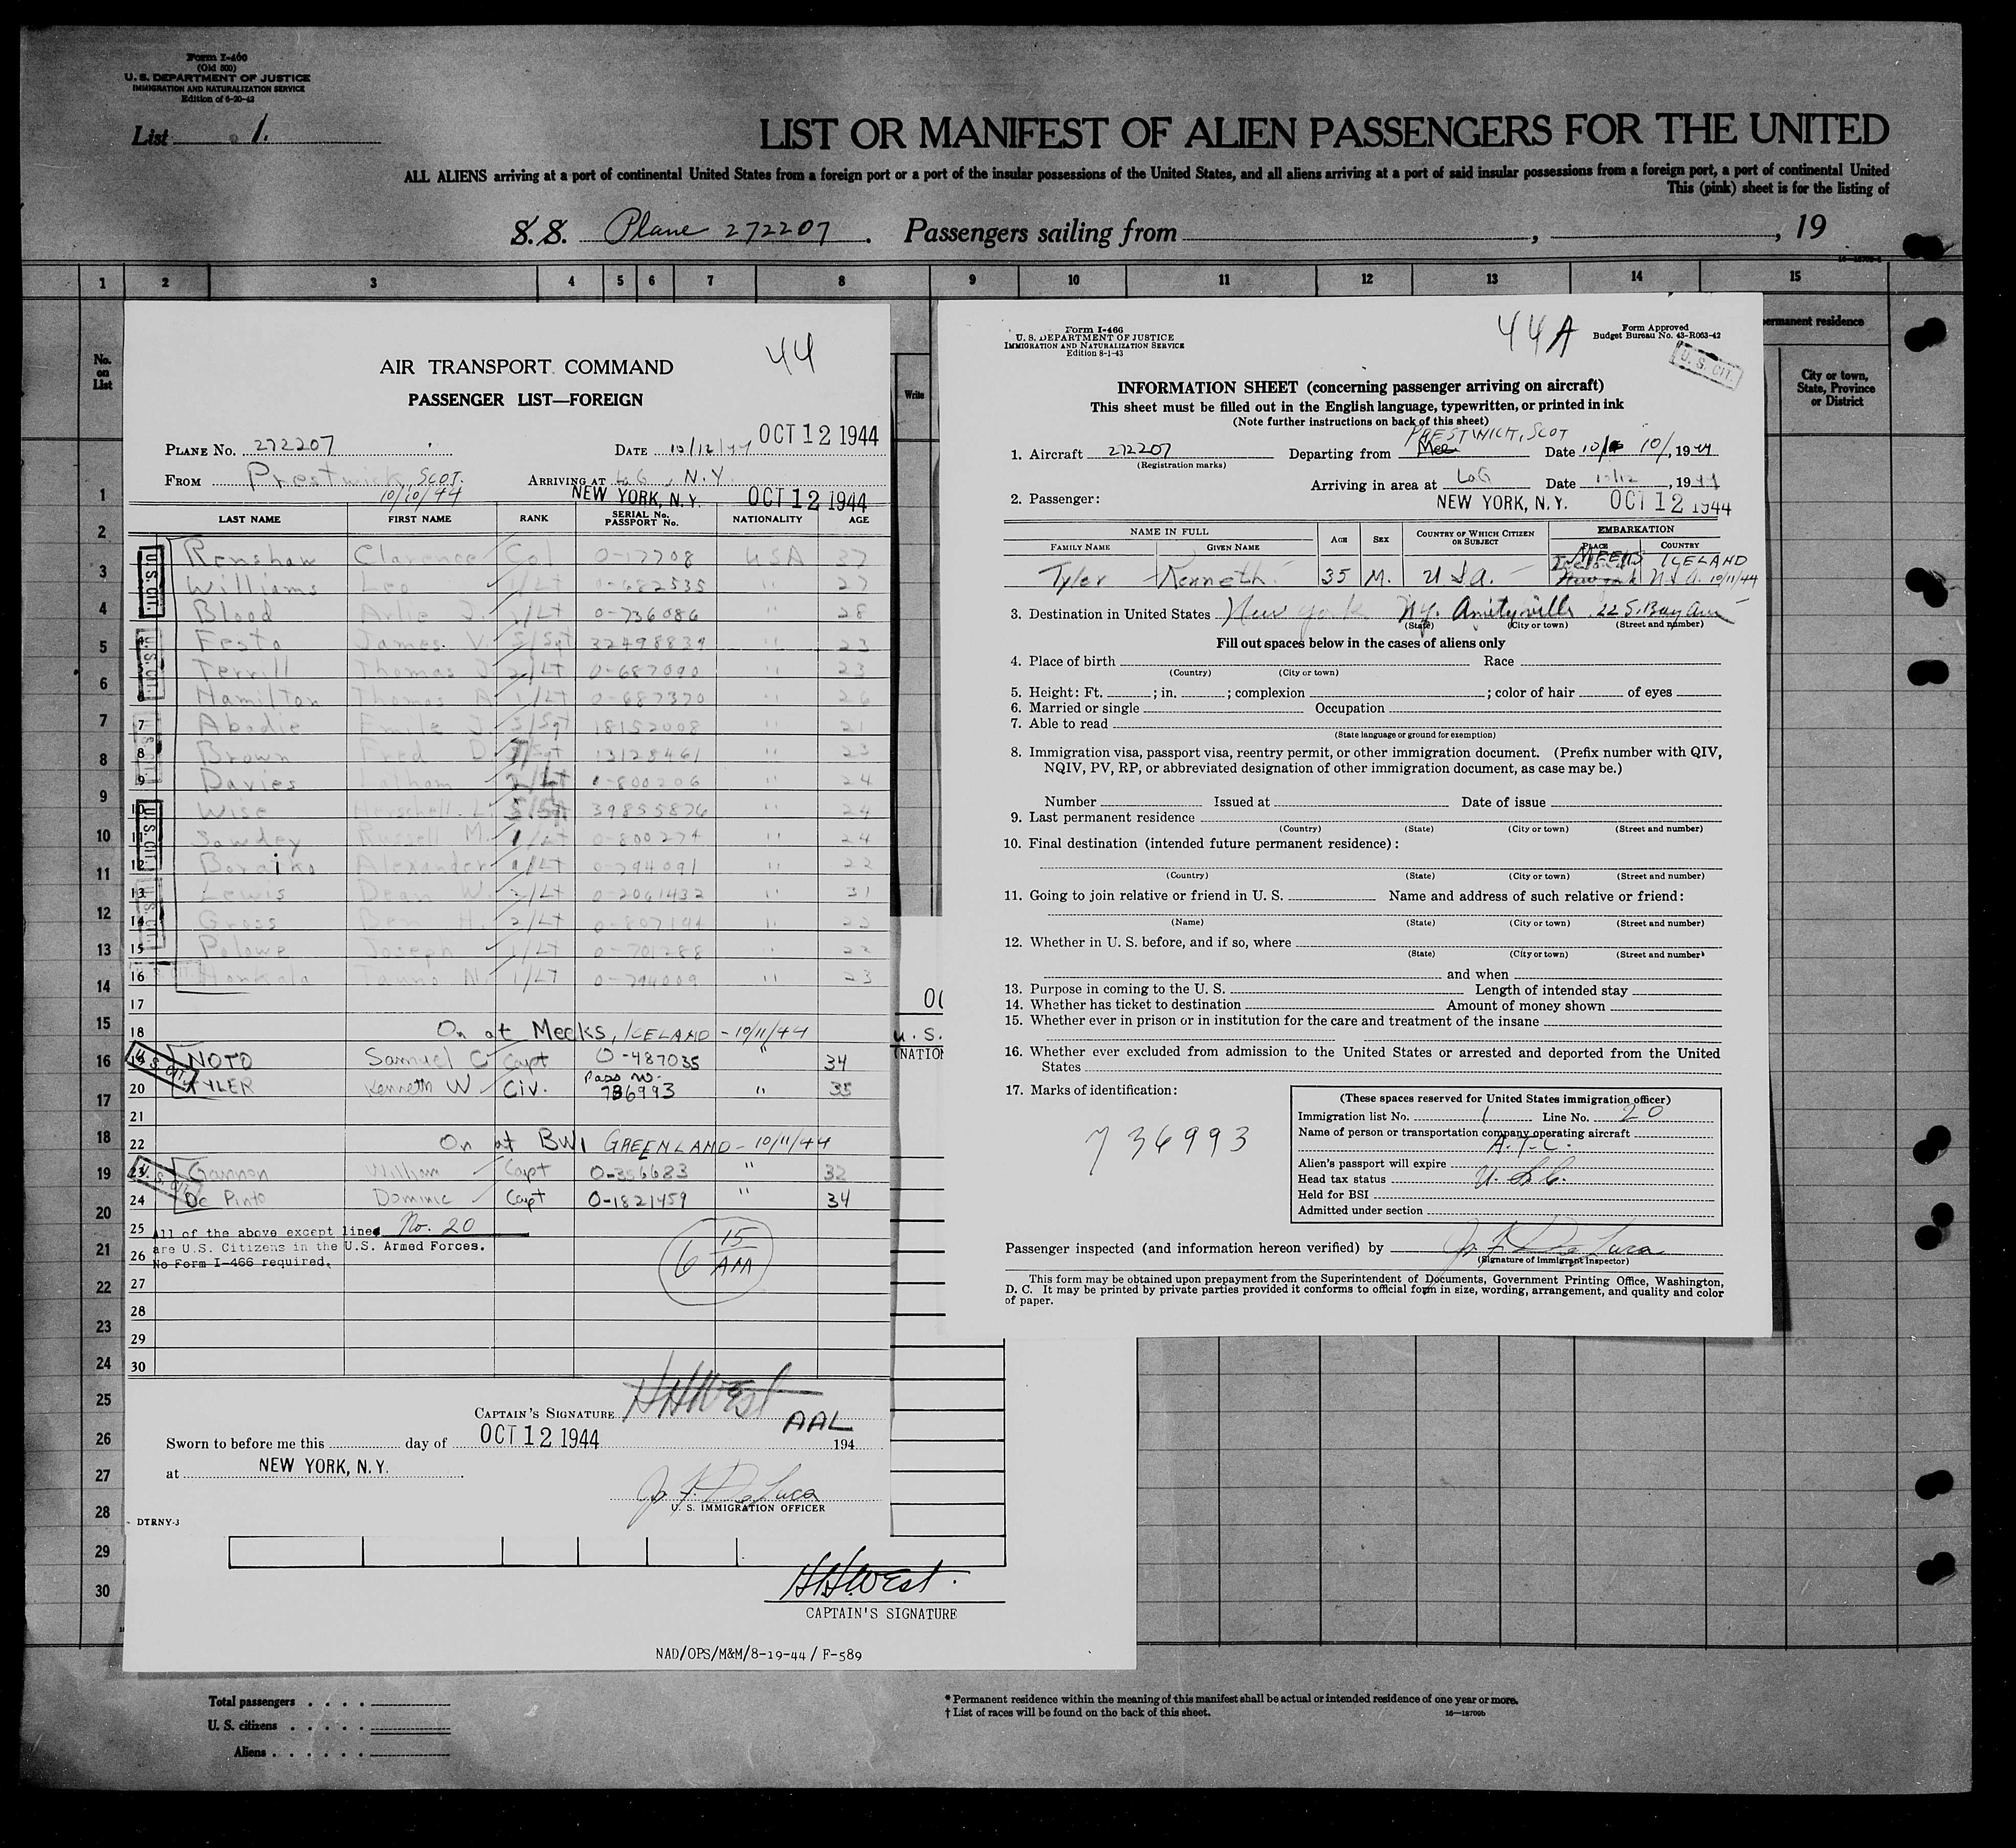 Form I-400
(Old 500)
U. S. DEPARTMENT OF JUSTICE
IMMIGRATION AND NATURALIZATION SERVICE
Edition of 6-20-42
List 1.
LIST OR MANIFEST OF ALIEN PASSENGERS FOR THE UNITED
ALL ALIENS arriving at a port of continental United States from a foreign port or a port of the insular possessions of the United States, and all aliens arriving at a port of said insular possessions from a foreign port, a port of continental United
This (pink) sheet is for the listing of
S.S. Plane 272207. Passengers sailing from , , 19
1 2 3 4 5 6 7 8 9 10 11 12 13 14 15
No. on List
Write
permanent residence
City or town, State, Province or District
44
AIR TRANSPORT COMMAND
PASSENGER LIST—FOREIGN
PLANE No. 272207 DATE 10/12/44 OCT 12 1944
FROM Prestwick, SCOT. ARRIVING AT LaG, N.Y.
10/10/44 NEW YORK, N.Y. OCT 12 1944
LAST NAME FIRST NAME RANK SERIAL No. PASSPORT No. NATIONALITY AGE
Renshaw Clarence Col 0-17708 USA 37
Williams Leo 1/Lt 0-682535 " 27
Blood Arlie J. 1/Lt 0-736086 " 28
Festa James V. S/Sgt 32498839 " 23
Terrill Thomas J. 2/Lt 0-687090 " 23
Hamilton Thomas A. 1/Lt 0-687370 " 26
7 Abadie Emile J. S/Sgt 18152008 " 21
8 Brown Fred D. T/Sgt 13128461 " 23
9 Davies 2/Lt 0-800206 " 24
10 Wise Herschell L. S/Sgt 39855876 " 24
11 Sowdey Russell M. 1/Lt 0-800274 " 24
12 Alexander 1/Lt 0-794091 " 22
13 Lewis Dean W. 2/Lt 0-2061432 " 31
14 Gross H. 2/Lt 0-807144 " 23
15 Joseph 1/Lt 0-701288 " 23
16 Honkala N. 1/Lt 0-794009 " 23
17
18 On at Meeks, ICELAND - 10/11/44
19 NOTO Samuel C Capt O-487035 " 34
20 TYLER Kenneth W Civ. Pass No. 736993 " 35
21
22 On at BW1 GREENLAND - 10/11/44
23 Gannon William Capt O-356683 " 32
24 De Pinto Dominic Capt O-1821459 " 34
25 All of the above except lines No. 20
26 are U.S. Citizens in the U.S. Armed Forces.
No Form I-466 required.
6 15 AM
27
28
29
30
CAPTAIN'S SIGNATURE HHWest
AAL
Sworn to before me this day of OCT 12 1944 194
at NEW YORK, N.Y.
Jo F. De Luca
U. S. IMMIGRATION OFFICER
DTRNY-J
HHWest.
CAPTAIN'S SIGNATURE
NAD/OPS/M&M/8-19-44/F-589
U.S.
(NATIO
Form I-466
U. S. DEPARTMENT OF JUSTICE
IMMIGRATION AND NATURALIZATION SERVICE
Edition 8-1-43
44A
Form Approved
Budget Bureau No. 43-R063-42
U.S. CIT.
INFORMATION SHEET (concerning passenger arriving on aircraft)
This sheet must be filled out in the English language, typewritten, or printed in ink
(Note further instructions on back of this sheet)
PRESTWICH, SCOT
1. Aircraft 272207 Departing from Mee Date 10/10/, 1944
(Registration marks)
Arriving in area at LaG Date 10/12, 1944
2. Passenger: NEW YORK, N.Y. OCT 12 1944
NAME IN FULL AGE SEX COUNTRY OF WHICH CITIZEN OR SUBJECT EMBARKATION
FAMILY NAME GIVEN NAME PLACE COUNTRY
MEEKS ICELAND
Tyler Kenneth 35 M. USA. New York 10/11/44
3. Destination in United States New York N.Y. Amityville 22 S. Bay Ave
(State) (City or town) (Street and number)
Fill out spaces below in the cases of aliens only
4. Place of birth Race
(Country) (City or town)
5. Height: Ft. ; in. ; complexion ; color of hair of eyes
6. Married or single Occupation
7. Able to read
(State language or ground for exemption)
8. Immigration visa, passport visa, reentry permit, or other immigration document. (Prefix number with QIV,
NQIV, PV, RP, or abbreviated designation of other immigration document, as case may be.)
Number Issued at Date of issue
9. Last permanent residence
(Country) (State) (City or town) (Street and number)
10. Final destination (intended future permanent residence):
(Country) (State) (City or town) (Street and number)
11. Going to join relative or friend in U. S. Name and address of such relative or friend:
(Name) (State) (City or town) (Street and number)
12. Whether in U. S. before, and if so, where
(State) (City or town) (Street and number)
and when
13. Purpose in coming to the U. S. Length of intended stay
14. Whether has ticket to destination Amount of money shown
15. Whether ever in prison or in institution for the care and treatment of the insane
16. Whether ever excluded from admission to the United States or arrested and deported from the United
States
17. Marks of identification:
736993
(These spaces reserved for United States immigration officer)
Immigration list No. 1 Line No. 20
Name of person or transportation company operating aircraft
A.T.C.
Alien's passport will expire
Head tax status U.S.C.
Held for BSI
Admitted under section
Passenger inspected (and information hereon verified) by Jo F. De Luca
(Signature of immigrant inspector)
This form may be obtained upon prepayment from the Superintendent of Documents, Government Printing Office, Washington,
D. C. It may be printed by private parties provided it conforms to official form in size, wording, arrangement, and quality and color
of paper.
Total passengers . . . .
U. S. citizens . . . . .
Aliens . . . . . .
* Permanent residence within the meaning of this manifest shall be actual or intended residence of one year or more.
† List of races will be found on the back of this sheet.
16—18709b